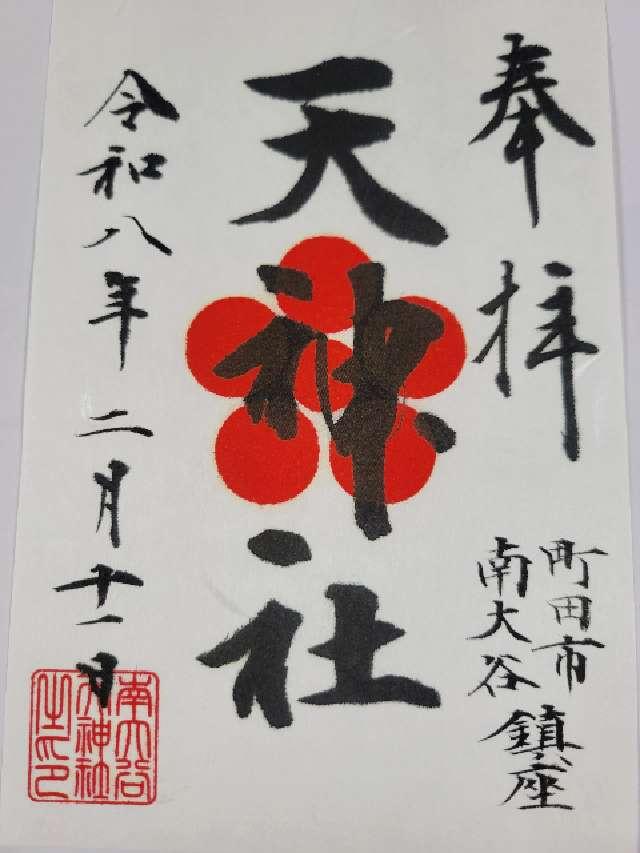 奉拝
町田市
南大谷
鎮座
天神社
令和八年二月十一日
南大谷
天神社
之印